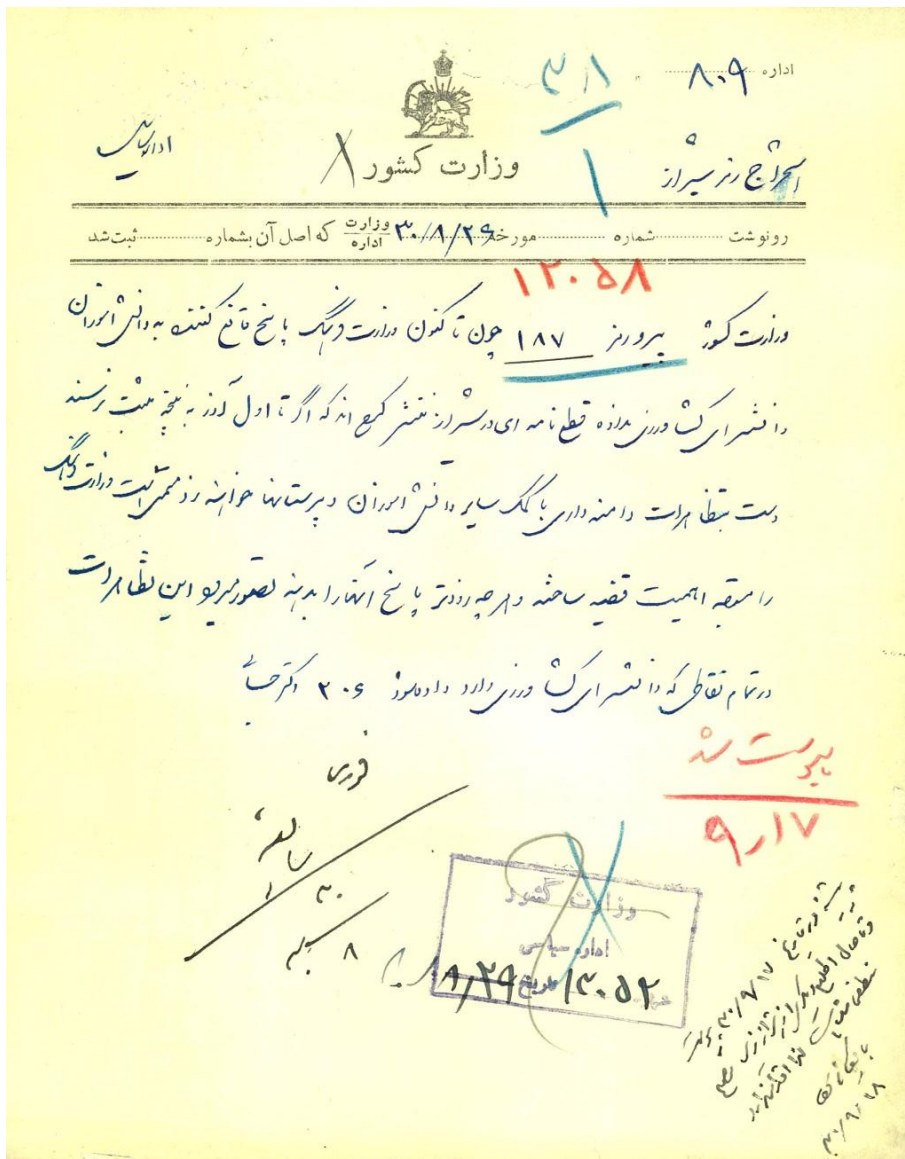 اداره ۸۰۹
۳۸
۱
اداره سیاسی
وزارت کشور
استخراج رمز شیراز
رونوشت شماره مورخه ۳۰/۸/۲۹ وزارت اداره که اصل آن بشماره ثبت شد
۱۲۰۵۸
وزارت کشور پیرو رمز ۱۸۷ چون تا کنون وزارت فرهنگ پاسخ قانع کننده به دانش آموزان
دانشسرای کشاورزی نداده قطع نامه ای در شیراز منتشر کرده اند که اگر تا اول آذر به نتیجه مثبت نرسند
دست بتظاهرات دامنه داری با کمک سایر دانش آموزان دبیرستانها خواهند زد متمنی است وزارت فرهنگ
را متوجه اهمیت قضیه ساخته و هر چه زودتر پاسخ آنها را بدهند تصور میرود این تظاهرات
در تمام نقاطی که دانشسرای کشاورزی دارد داده شود ۳۰۶ دکتر حسابی
فوری
پیوست شد
۹/۱۷
وزارت کشور
اداره سیاسی
۱۳۰۵۲ تاریخ ۸/۲۹
۳۰/۹/۱۷
۳۰/۹/۱۸